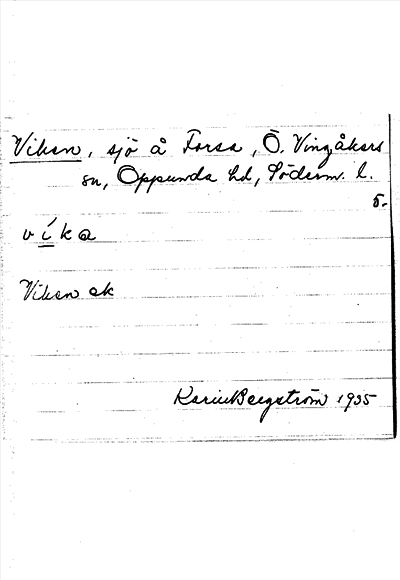 Viken, sjö å Forsa, Ö. Vingåkers
sn, Oppunda hd, Söderm. l.
5.
v í k a
Viken ek
Karin Bergström 1935